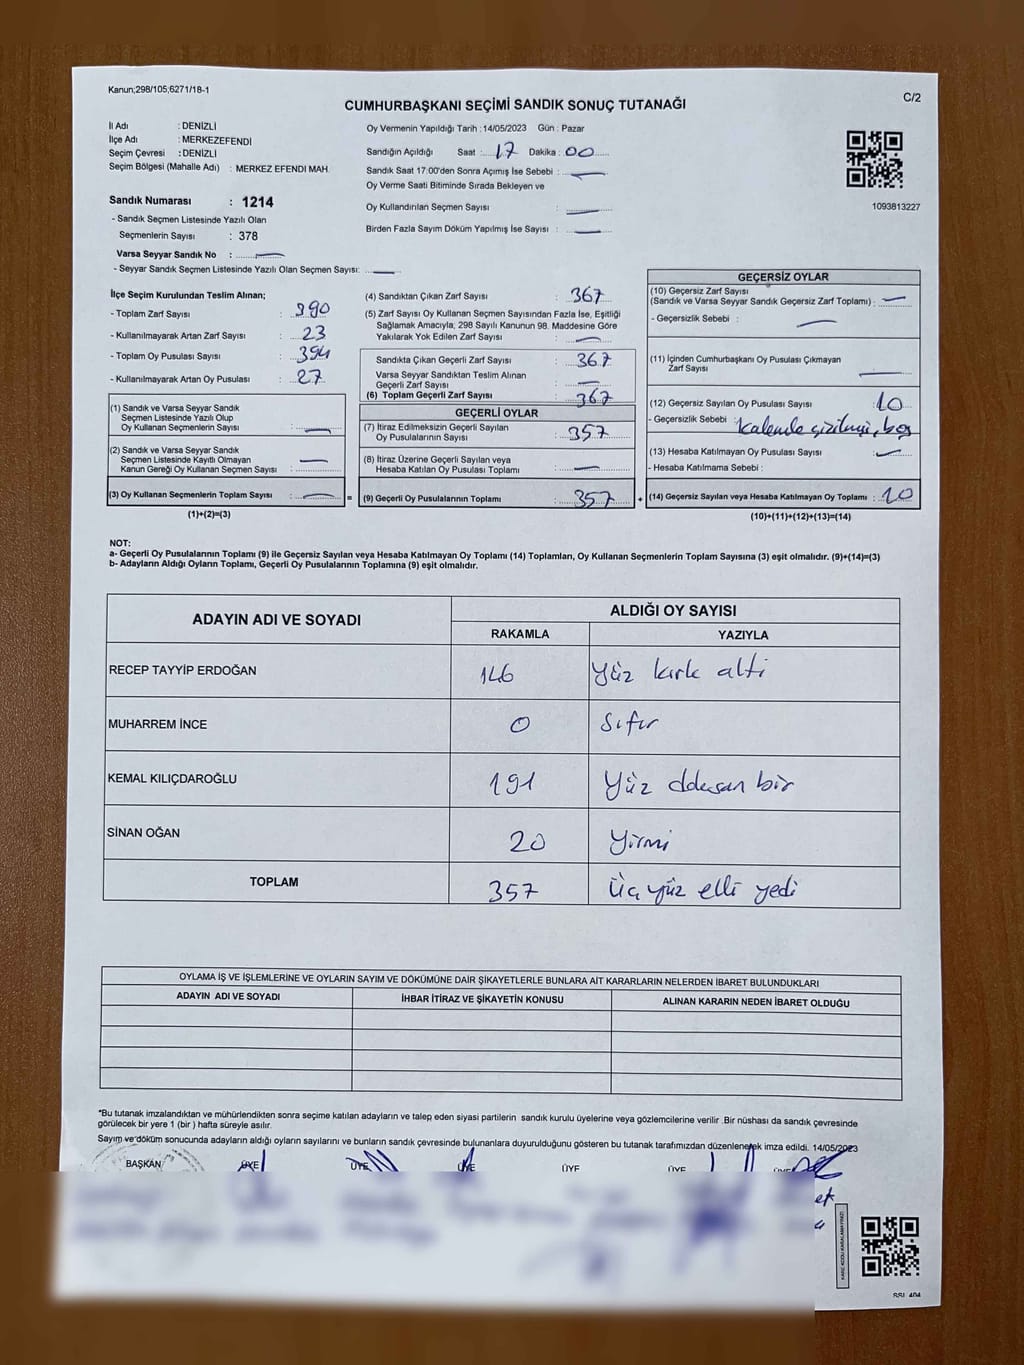 Kanun;298/105;6271/18-1
C/2
CUMHURBAŞKANI SEÇİMİ SANDIK SONUÇ TUTANAĞI
İl Adı : DENİZLİ
İlçe Adı : MERKEZEFENDİ
Seçim Çevresi : DENİZLİ
Seçim Bölgesi (Mahalle Adı) : MERKEZ EFENDİ MAH.
Sandık Numarası : 1214
- Sandık Seçmen Listesinde Yazılı Olan
Seçmenlerin Sayısı : 378
Varsa Seyyar Sandık No : —
- Seyyar Sandık Seçmen Listesinde Yazılı Olan Seçmen Sayısı: —
Oy Vermenin Yapıldığı Tarih : 14/05/2023 Gün : Pazar
Sandığın Açıldığı Saat : 17 Dakika : 00
Sandık Saat 17:00'den Sonra Açımış İse Sebebi : —
Oy Verme Saati Bitiminde Sırada Bekleyen ve
Oy Kullandırılan Seçmen Sayısı : —
Birden Fazla Sayım Döküm Yapılmış İse Sayısı : —
1093813227
İlçe Seçim Kurulundan Teslim Alınan;
- Toplam Zarf Sayısı : 390
- Kullanılmayarak Artan Zarf Sayısı : 23
- Toplam Oy Pusulası Sayısı : 394
- Kullanılmayarak Artan Oy Pusulası : 27
(1) Sandık ve Varsa Seyyar Sandık
Seçmen Listesinde Yazılı Olup
Oy Kullanan Seçmenlerin Sayısı : —
(2) Sandık ve Varsa Seyyar Sandık
Seçmen Listesinde Kayıtlı Olmayan
Kanun Gereği Oy Kullanan Seçmen Sayısı : —
(3) Oy Kullanan Seçmenlerin Toplam Sayısı : — =
(1)+(2)=(3)
(4) Sandıktan Çıkan Zarf Sayısı : 367
(5) Zarf Sayısı Oy Kullanan Seçmen Sayısından Fazla İse, Eşitliği
Sağlamak Amacıyla; 298 Sayılı Kanunun 98. Maddesine Göre
Yakılarak Yok Edilen Zarf Sayısı : —
Sandıkta Çıkan Geçerli Zarf Sayısı : 367
Varsa Seyyar Sandıktan Teslim Alınan
Geçerli Zarf Sayısı : —
(6) Toplam Geçerli Zarf Sayısı : 367
GEÇERLİ OYLAR
(7) İtiraz Edilmeksizin Geçerli Sayılan
Oy Pusulalarının Sayısı : 357
(8) İtiraz Üzerine Geçerli Sayılan veya
Hesaba Katılan Oy Pusulası Toplamı : —
(9) Geçerli Oy Pusulalarının Toplamı : 357 +
GEÇERSİZ OYLAR
(10) Geçersiz Zarf Sayısı
(Sandık ve Varsa Seyyar Sandık Geçersiz Zarf Toplamı) : —
- Geçersizlik Sebebi : —
(11) İçinden Cumhurbaşkanı Oy Pusulası Çıkmayan
Zarf Sayısı : —
(12) Geçersiz Sayılan Oy Pusulası Sayısı : 10
- Geçersizlik Sebebi : Kalemle çizilmiş, boş
(13) Hesaba Katılmayan Oy Pusulası Sayısı : —
- Hesaba Katılmama Sebebi :
(14) Geçersiz Sayılan veya Hesaba Katılmayan Oy Toplamı : 10
(10)+(11)+(12)+(13)=(14)
NOT:
a- Geçerli Oy Pusulalarının Toplamı (9) ile Geçersiz Sayılan veya Hesaba Katılmayan Oy Toplamı (14) Toplamları, Oy Kullanan Seçmenlerin Toplam Sayısına (3) eşit olmalıdır. (9)+(14)=(3)
b- Adayların Aldığı Oyların Toplamı, Geçerli Oy Pusulalarının Toplamına (9) eşit olmalıdır.
ADAYIN ADI VE SOYADI
ALDIĞI OY SAYISI
RAKAMLA YAZIYLA
RECEP TAYYİP ERDOĞAN 146 Yüz kırk altı
MUHARREM İNCE 0 Sıfır
KEMAL KILIÇDAROĞLU 191 Yüz doksan bir
SİNAN OĞAN 20 Yirmi
TOPLAM 357 Üç yüz elli yedi
OYLAMA İŞ VE İŞLEMLERİNE VE OYLARIN SAYIM VE DÖKÜMÜNE DAİR ŞİKAYETLERLE BUNLARA AİT KARARLARIN NELERDEN İBARET BULUNDUKLARI
ADAYIN ADI VE SOYADI İHBAR İTİRAZ VE ŞİKAYETİN KONUSU ALINAN KARARIN NEDEN İBARET OLDUĞU
*Bu tutanak imzalandıktan ve mühürlendikten sonra seçime katılan adayların ve talep eden siyasi partilerin sandık kurulu üyelerine veya gözlemcilerine verilir .Bir nüshası da sandık çevresinde
görülecek bir yere 1 (bir ) hafta süreyle asılır.
Sayım ve döküm sonucunda adayların aldığı oyların sayılarını ve bunların sandık çevresinde bulunanlara duyurulduğunu gösteren bu tutanak tarafımızdan düzenlenerek imza edildi. 14/05/2023
BAŞKAN ÜYE ÜYE ÜYE ÜYE ÜYE ÜYE